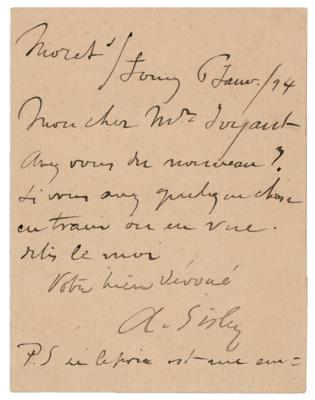 Moret s/
Loing 6 Janv./94
Mon cher Mr Joyant
Avez vous du nouveau ?
Si vous avez quelque chose
en train ou en vue.
dites le moi
Votre bien dévoué
A. Sisley
P.S est une